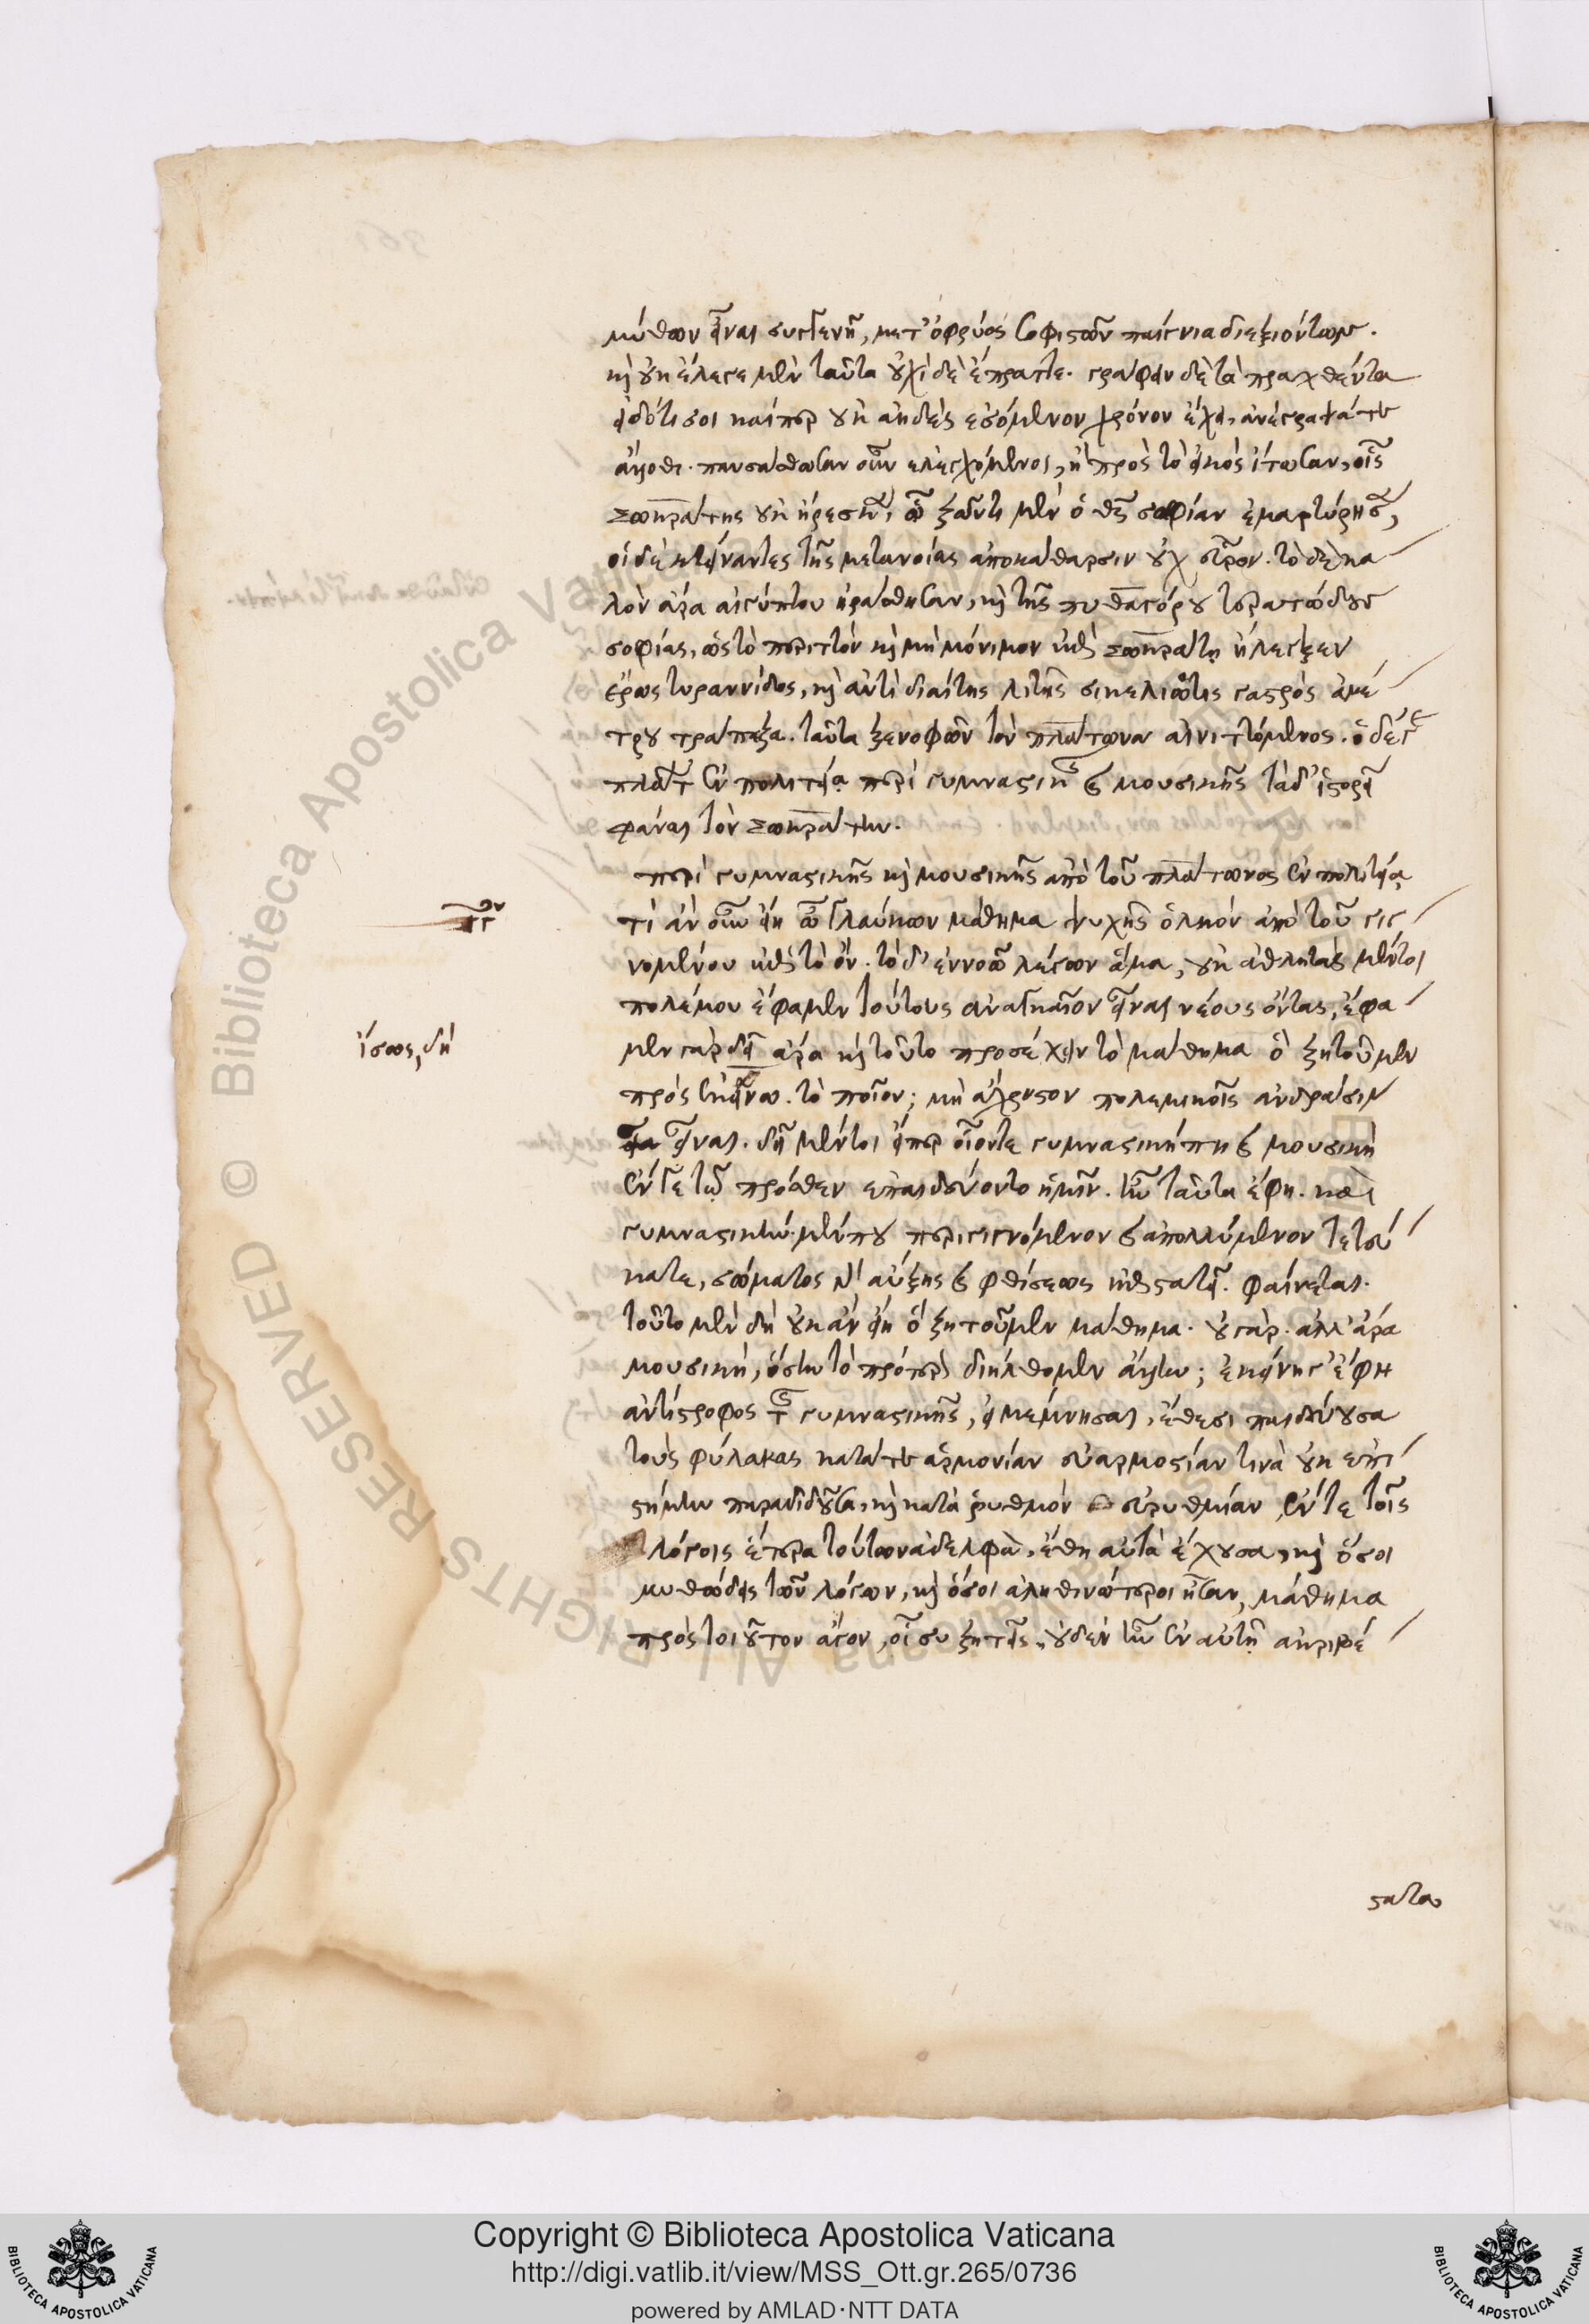 μύθων εἶναι συγγενῆ, μετ' ὀφρύος σοφιστῶν παίγνια διεξιόντων.
καὶ οὐκ ἔλεγε μὲν ταῦτα οὐχὶ δὲ ἔπραττε. γράφειν δὲ τὰ πραχθέντα
εἰδότι σοι καίπερ οὐκ ἀηδὲς ἐσόμενον χρόνον ἔχει, ἀνέγραψά τε
ἄλλοθι. παυσάσθωσαν οὖν ἐλεγχόμενοι, ἢ πρὸς τὸ εἰκὸς ἴτωσαν, οἷς
Σωκράτης οὐκ ἤρεσκεν, ᾧ ζῶντι μὲν ὁ θεὸς σοφίαν ἐμαρτύρησεν,
οἱ δὲ κτείναντες τῆς μετανοίας ἀποκάθαρσιν οὐχ εὗρον. τὸ δὲ κα
λὸν ἄρα αἰγύπτου ἠράσθησαν, καὶ τῆς πυθαγόρου τερατώδους
σοφίας, ὧς τὸ περιττὸν καὶ μὴ μόνιμον ἐπὶ Σωκράτῃ ἤλεγξεν
ἔρως τυραννίδος, καὶ ἀντὶ διαίτης λιτῆς σικελιῶτις γαστρὸς ἀμέ
τρου τράπεζα. ταῦτα ξενοφῶν τὸν πλάτωνα αἰνιττόμενος. ὁ δέ γε
πλάτων ἐν πολιτείᾳ περὶ γυμναστικῆς καὶ μουσικῆς τάδ' ἱστορεῖ
φάναι τὸν Σωκράτην.
περὶ γυμναστικῆς καὶ μουσικῆς ἀπὸ τοῦ πλάτωνος ἐν πολιτείᾳ
τί ἂν οὖν εἴη ὦ Γλαύκων μάθημα ψυχῆς ὁλκὸν ἀπὸ τοῦ γιγ
νομένου ἐπὶ τὸ ὄν. τὸ δ' ἐννοῶ λέγων ἅμα, οὐκ ἀθλητὰς μέντοι
πολέμου ἔφαμεν τούτους ἀναγκαῖον εἶναι νέους ὄντας, ἔφα
ἴσως, δὴ
μεν γὰρ δεῖ ἄρα καὶ τοῦτο προσέχειν τὸ μάθημα ὃ ζητοῦμεν
πρὸς ἐκεῖνω. τὸ ποῖον; μὴ ἄχρηστον πολεμικοῖς ἀνδράσιν
εἶναι. δεῖ μέντοι εἴπερ οἷόντε γυμναστικῇ πῃ καὶ μουσικῇ
ἔν γε τῷ πρόσθεν ἐπαιδεύοντο ἡμῖν. ἦν ταῦτα ἔφη. καὶ
γυμναστικὴ μέν που περὶ γιγνόμενον καὶ ἀπολλύμενον τετεύ
κατε, σώματος γὰρ αὔξης καὶ φθίσεως ἐπιστατεῖ. φαίνεται.
τοῦτο μὲν δὴ οὐκ ἂν εἴη ὃ ζητοῦμεν μάθημα. οὐ γάρ. ἀλλ' ἄρα
μουσικὴ, ὅσην τὸ πρότερον διήλθομεν ἄλλην; ἐκείνης γ' ἔφη
ἀντίστροφος τῆς γυμναστικῆς, εἰ μέμνησαι, ἔθεσι παιδεύουσα
τοὺς φύλακας κατά τε ἁρμονίαν εὐαρμοστίαν τινὰ οὐκ ἐπι
στήμην παραδιδοῦσα, καὶ κατὰ ῥυθμὸν εὐρυθμίαν, ἔν τε τοῖς
λόγοις ἕτερα τούτων ἀδελφὰ, ἔθη αὐτὰ ἔχουσα, καὶ ὅσοι
μυθώδεις τῶν λόγων, καὶ ὅσοι ἀληθινώτεροι ἦσαν, μάθημα
πρὸς τοιοῦτον ἄγον, οἷ συ ζητεῖς, οὐδὲν ἦν ἐν αὐτῇ ἀκριβέ
στατα
Copyright © Biblioteca Apostolica Vaticana
http://digi.vatlib.it/view/MSS_Ott.gr.265/0736
powered by AMLAD · NTT DATA